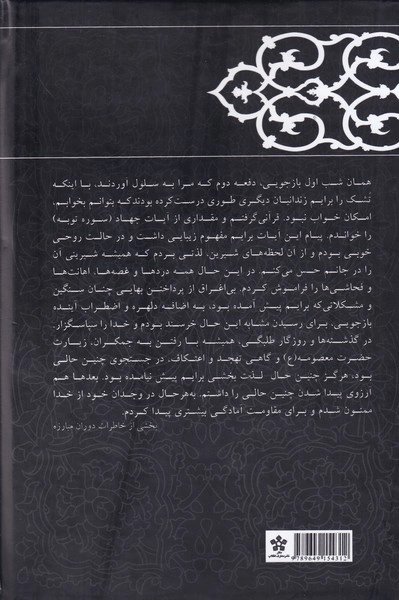 همان شب اول بازجویی، دفعه دوم که مرا به سلول آوردند، با اینکه
تشک را برایم زندانیان دیگری طوری درست کرده بودند که بتوانم بخوابم،
امکان خواب نبود. قرآنی گرفتم و مقداری از آیات جهاد (سوره توبه)
را خواندم. پیام این آیات برایم مفهوم زیبایی داشت و در حالت روحی
خوبی بودم و از آن لحظه‌های شیرین، لذتی بردم که همیشه شیرینی آن
را در جانم حس می‌کنم. در این حال همه دردها و غصه‌ها، اهانت‌ها
و فحاشی‌ها را فراموش کردم. بی‌اغراق از پرداختن بهایی چنان سنگین
و مشکلاتی که برایم پیش آمده بود، به اضافه دلهره و اضطراب آینده
بازجویی، برای رسیدن مشابه این حال خرسند بودم و خدا را سپاسگزار.
در گذشته‌ها و روزگار طلبگی، همیشه با رفتن به جمکران، زیارت
حضرت معصومه(ع) و گاهی تهجد و اعتکاف، در جستجوی چنین حالی
بود، هرگز چنین حال لذت بخشی برایم پیش نیامده بود. بعدها هم
آرزوی پیدا شدن چنین حالی را داشتم. به‌هرحال در وجدان خود از خدا
ممنون شدم و برای مقاومت آمادگی بیشتری پیدا کردم.
بخشی از خاطرات دوران مبارزه
9789649154312